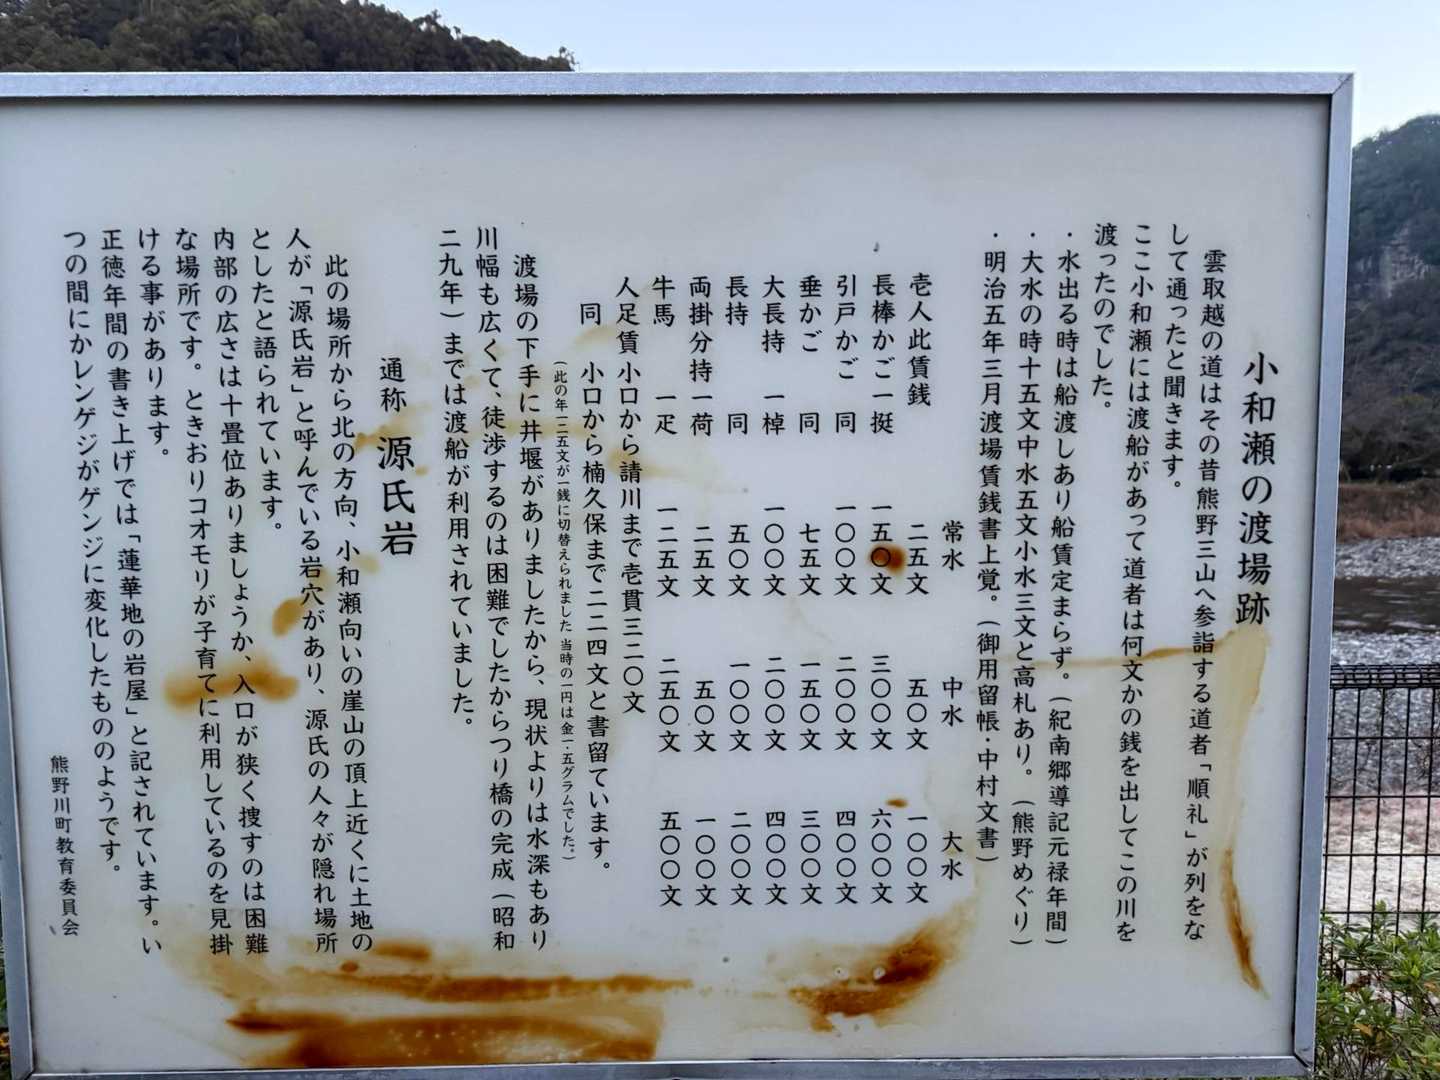 小和瀬の渡場跡
雲取越の道はその昔熊野三山へ参詣する道者「順礼」が列をな
して通ったと聞きます。
ここ小和瀬には渡船があって道者は何文かの銭を出してこの川を
渡ったのでした。
・水出る時は船渡しあり船賃定まらず。（紀南郷導記元禄年間）
・大水の時十五文中水五文小水三文と高札あり。（熊野めぐり）
・明治五年三月渡場賃銭書上覚。（御用留帳・中村文書）
常水 中水 大水
壱人此賃銭 二五文 五〇文 一〇〇文
長棒かご一挺 一五〇文 三〇〇文 六〇〇文
引戸かご 同 一〇〇文 二〇〇文 四〇〇文
垂かご 同 七五文 一五〇文 三〇〇文
大長持 一棹 一〇〇文 二〇〇文 四〇〇文
長持 同 五〇文 一〇〇文 二〇〇文
両掛分持一荷 二五文 五〇文 一〇〇文
牛馬 一疋 一二五文 二五〇文 五〇〇文
人足賃小口から請川まで壱貫三二〇文
同 小口から楠久保まで二二四文と書留ています。
（此の年一二五文が一銭に切替えられました 当時の一円は金一・五グラムでした。）
渡場の下手に井堰がありましたから、現状よりは水深もあり
川幅も広くて、徒渉するのは困難でしたからつり橋の完成（昭和
二九年）までは渡船が利用されていました。
通称 源氏岩
此の場所から北の方向、小和瀬向いの崖山の頂上近くに土地の
人が「源氏岩」と呼んでいる岩穴があり、源氏の人々が隠れ場所
としたと語られています。
内部の広さは十畳位ありましょうか、入口が狭く捜すのは困難
な場所です。ときおりコオモリが子育てに利用しているのを見掛
ける事があります。
正徳年間の書き上げでは「蓮華地の岩屋」と記されています。い
つの間にかレンゲジがゲンジに変化したもののようです。
熊野川町教育委員会